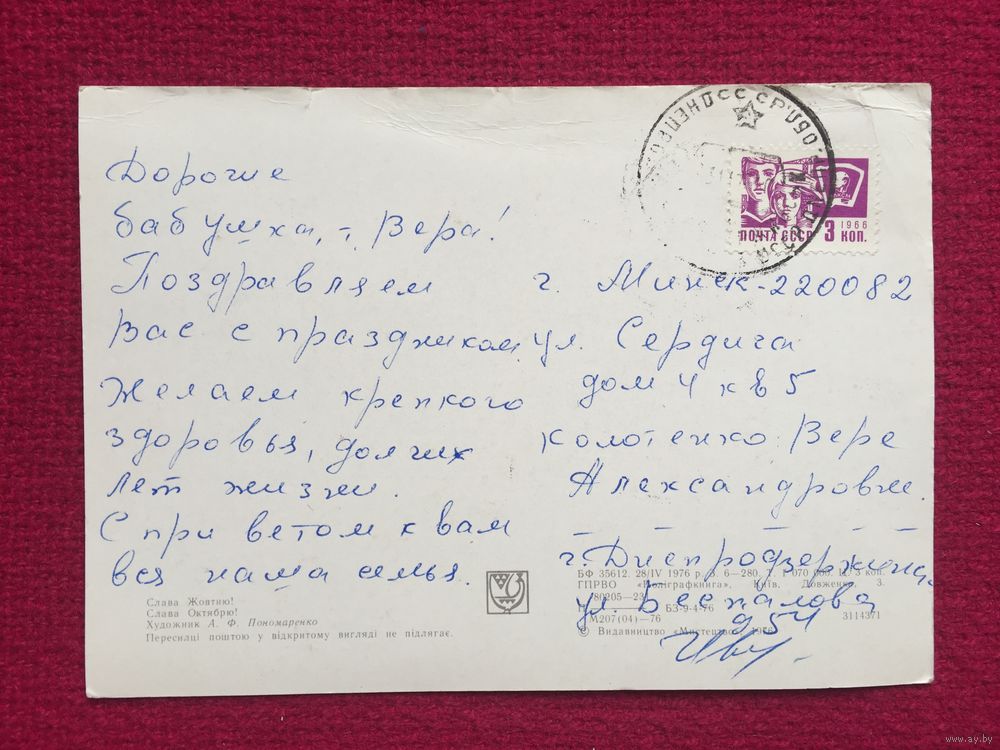 Дорогие
бабушка, т. Вера!
Поздравляем
Вас с праздником
Желаем крепкого
здоровья, долгих
лет жизни.
С приветом к вам
вся наша семья.
ПОЧТА СССР 3 КОП.
1966
г. Минск-220082
ул. Сердича
дом 4 кв 5
Колотенко Вере
Александровн.
г. Днепродзержинск
ул. Беспалова
д 54
Слава Жовтню!
Слава Октябрю!
Художник А. Ф. Пономаренко
Пересилці поштою у відкритому вигляді не підлягає.
БФ 35612. 28/IV 1976 р. З. 6—280. Т. 1 070 000 Ц. 3 коп.
ГПРВО «Поліграфкнига», Київ, Довженка, 3.
80205—23
М207(04)—76 БЗ-9-4-76 3114371
© Видавництво «Мистецтво», 1976
www.ay.by